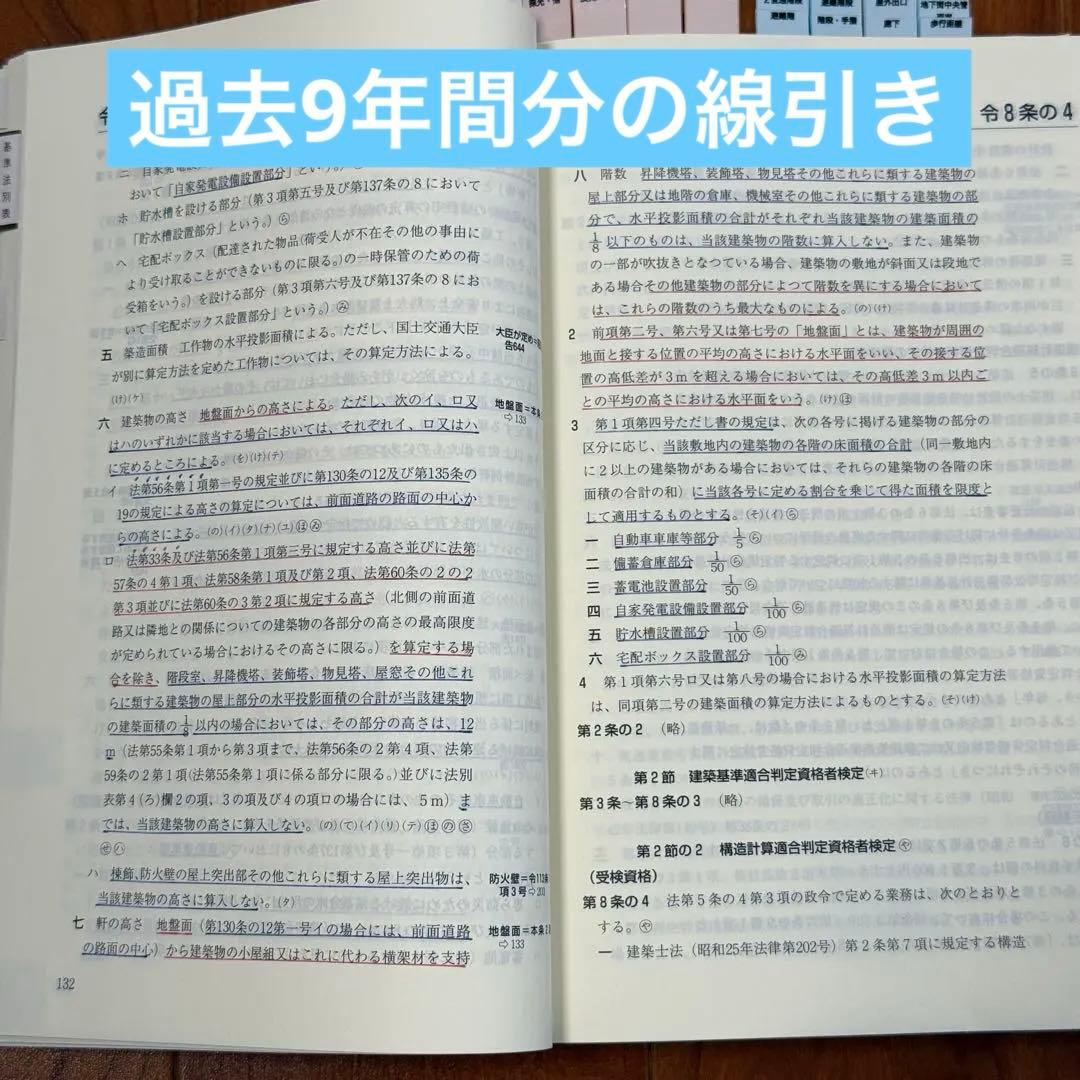 過去9年間分の線引き
令8条の4
採光・換
避難階段
屋外出口
地下街中央管
避難階
階段・手摺
廊下
歩行距離
基準法別表
おいて「自家発電設備設置部分」という。)
ホ 貯水槽を設ける部分(第3項第五号及び第137条の8において
「貯水槽設置部分」という。)ら
ヘ 宅配ボックス(配達された物品(荷受人が不在その他の事由に
より受け取ることができないものに限る。)の一時保管のための荷
受箱をいう。)を設ける部分(第3項第六号及び第137条の8にお
いて「宅配ボックス設置部分」という。)み
五 築造面積 工作物の水平投影面積による。ただし、国土交通大臣
が別に算定方法を定めた工作物については、その算定方法による。
(け)(ケ)
大臣が定め=
告644
六 建築物の高さ 地盤面からの高さによる。ただし、次のイ、ロ又
はハのいずれかに該当する場合においては、それぞれイ、ロ又はハ
に定めるところによる。(を)(け)(テ)
地盤面=本条
⇨133
イ 法第56条第1項第一号の規定並びに第130条の12及び第135条の
19の規定による高さの算定については、前面道路の路面の中心か
らの高さによる。(の)(イ)(タ)(ナ)(ユ)ほゐ
ロ 法第33条及び法第56条第1項第三号に規定する高さ並びに法第
57条の4第1項、法第58条第1項及び第2項、法第60条の2の2
第3項並びに法第60条の3第2項に規定する高さ(北側の前面道
路又は隣地との関係についての建築物の各部分の高さの最高限度
が定められている場合におけるその高さに限る。)を算定する場
合を除き、階段室、昇降機塔、装飾塔、物見塔、屋窓その他これ
らに類する建築物の屋上部分の水平投影面積の合計が当該建築物
の建築面積の1/8以内の場合においては、その部分の高さは、12
m(法第55条第1項から第3項まで、法第56条の2第4項、法第
59条の2第1項(法第55条第1項に係る部分に限る。)並びに法別
表第4(ろ)欄2の項、3の項及び4の項ロの場合には、5m)ま
では、当該建築物の高さに算入しない。(の)(て)(イ)(リ)(テ)ほのさ
せハ
ハ 棟飾、防火壁の屋上突出部その他これらに類する屋上突出物は、
当該建築物の高さに算入しない。(タ)
防火壁=令113条
項3号⇨203
七 軒の高さ 地盤面(第130条の12第一号イの場合には、前面道路
の路面の中心)から建築物の小屋組又はこれに代わる横架材を支持
地盤面=本条2
⇨133
132
八 階数 昇降機塔、装飾塔、物見塔その他これらに類する建築物の
屋上部分又は地階の倉庫、機械室その他これらに類する建築物の部
分で、水平投影面積の合計がそれぞれ当該建築物の建築面積の
1/8以下のものは、当該建築物の階数に算入しない。また、建築物
の一部が吹抜きとなつている場合、建築物の敷地が斜面又は段地で
ある場合その他建築物の部分によつて階数を異にする場合において
は、これらの階数のうち最大なものによる。(の)(け)
2 前項第二号、第六号又は第七号の「地盤面」とは、建築物が周囲の
地面と接する位置の平均の高さにおける水平面をいい、その接する位
置の高低差が3mを超える場合においては、その高低差3m以内ご
との平均の高さにおける水平面をいう。(け)ほ
3 第1項第四号ただし書の規定は、次の各号に掲げる建築物の部分の
区分に応じ、当該敷地内の建築物の各階の床面積の合計(同一敷地内
に2以上の建築物がある場合においては、それらの建築物の各階の床
面積の合計の和)に当該各号に定める割合を乗じて得た面積を限度と
して適用するものとする。(そ)(イ)ら
一 自動車車庫等部分 1/5ら
二 備蓄倉庫部分 1/50ら
三 蓄電池設置部分 1/50ら
四 自家発電設備設置部分 1/100ら
五 貯水槽設置部分 1/100ら
六 宅配ボックス設置部分 1/100み
4 第1項第六号ロ又は第八号の場合における水平投影面積の算定方法
は、同項第二号の建築面積の算定方法によるものとする。(そ)(け)
第2条の2 (略)
第2節 建築基準適合判定資格者検定(ヰ)
第3条~第8条の3 (略)
第2節の2 構造計算適合判定資格者検定や
(受検資格)
第8条の4 法第5条の4第3項の政令で定める業務は、次のとおりと
する。や
一 建築士法(昭和25年法律第202号)第2条第7項に規定する構造